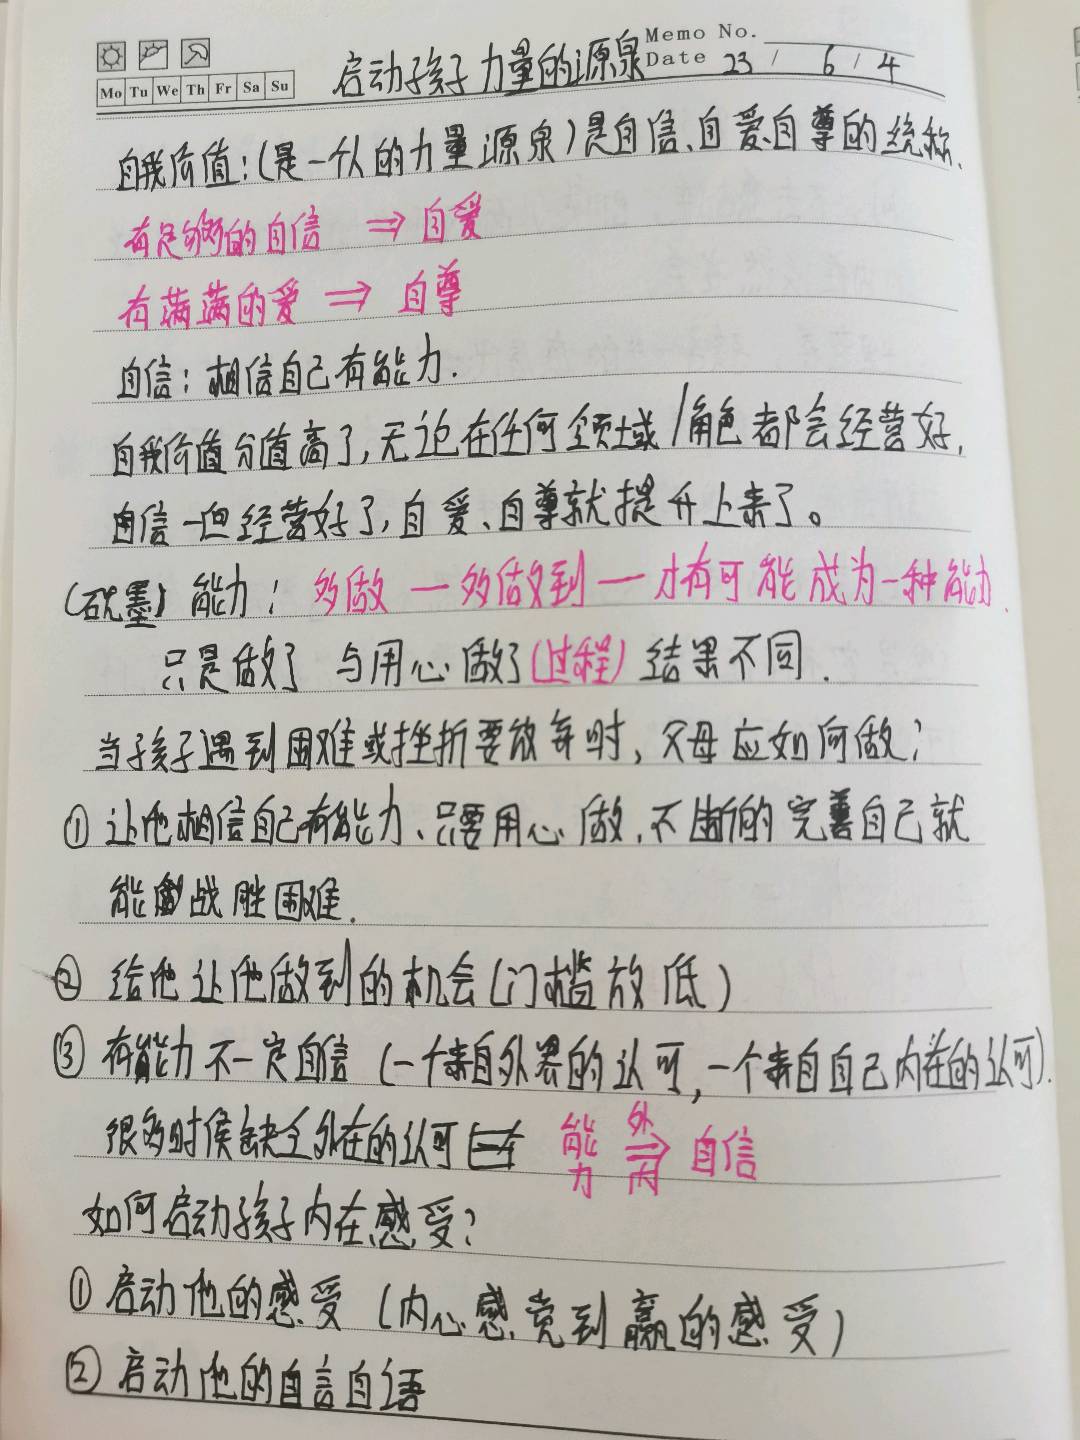 Memo No.
Mo Tu We Th Fr Sa Su
启动孩子力量的源泉
Date 23 / 6 / 4
自我价值:(是一个人的力量源泉)是自信、自爱、自尊的统称.
有足够的自信 ⇒ 自爱
有满满的爱 ⇒ 自尊
自信:相信自己有能力.
自我价值分值高了,无论在任何领域/角色都会经营好,
自信一旦经营好了,自爱、自尊就提升上来了。
(砚墨) 能力:多做 — 多做到 — 才有可能成为一种能力.
只是做了 与用心做了(过程) 结果不同.
当孩子遇到困难或挫折要放弃时,父母应如何做?
① 让他相信自己有能力、只要用心做,不断的完善自己就
能战胜困难.
② 给他让他做到的机会(门槛放低)
③ 有能力不一定自信 (一个来自外界的认可,一个来自自己内在的认可).
很多时候缺乏外在的认可 能力 外⇒内 自信
如何启动孩子内在感受?
① 启动他的感受 (内心感觉到赢的感受)
② 启动他的自言自语